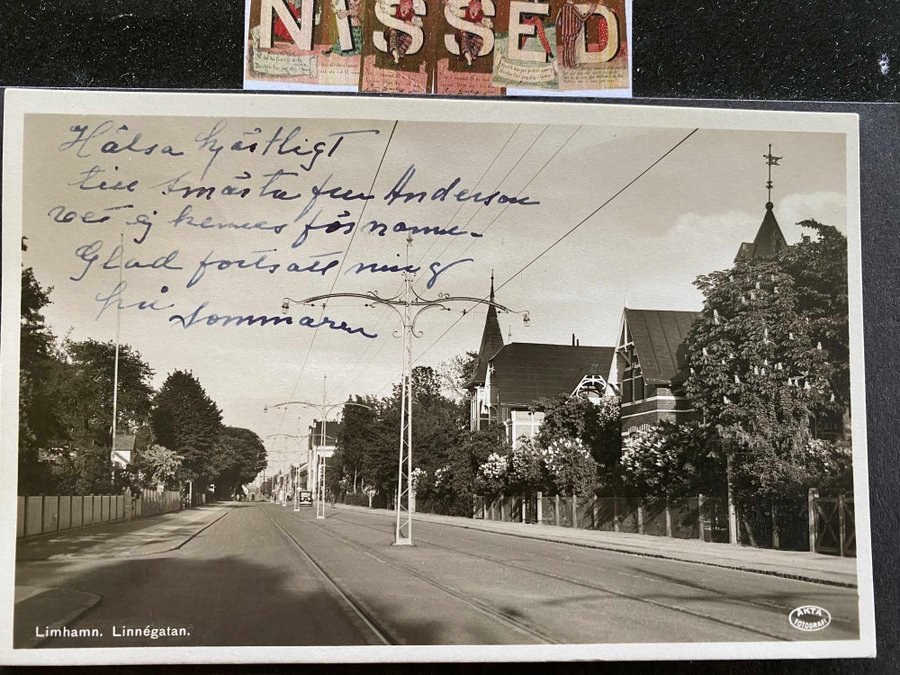 NISSED
Hälsa hjärtligt
till Smästa fru Anderson
vet ej hennes förnamn.
Glad fortsättning
på Sommaren
Limhamn. Linnégatan.
ÄKTA
FOTOGRAFI